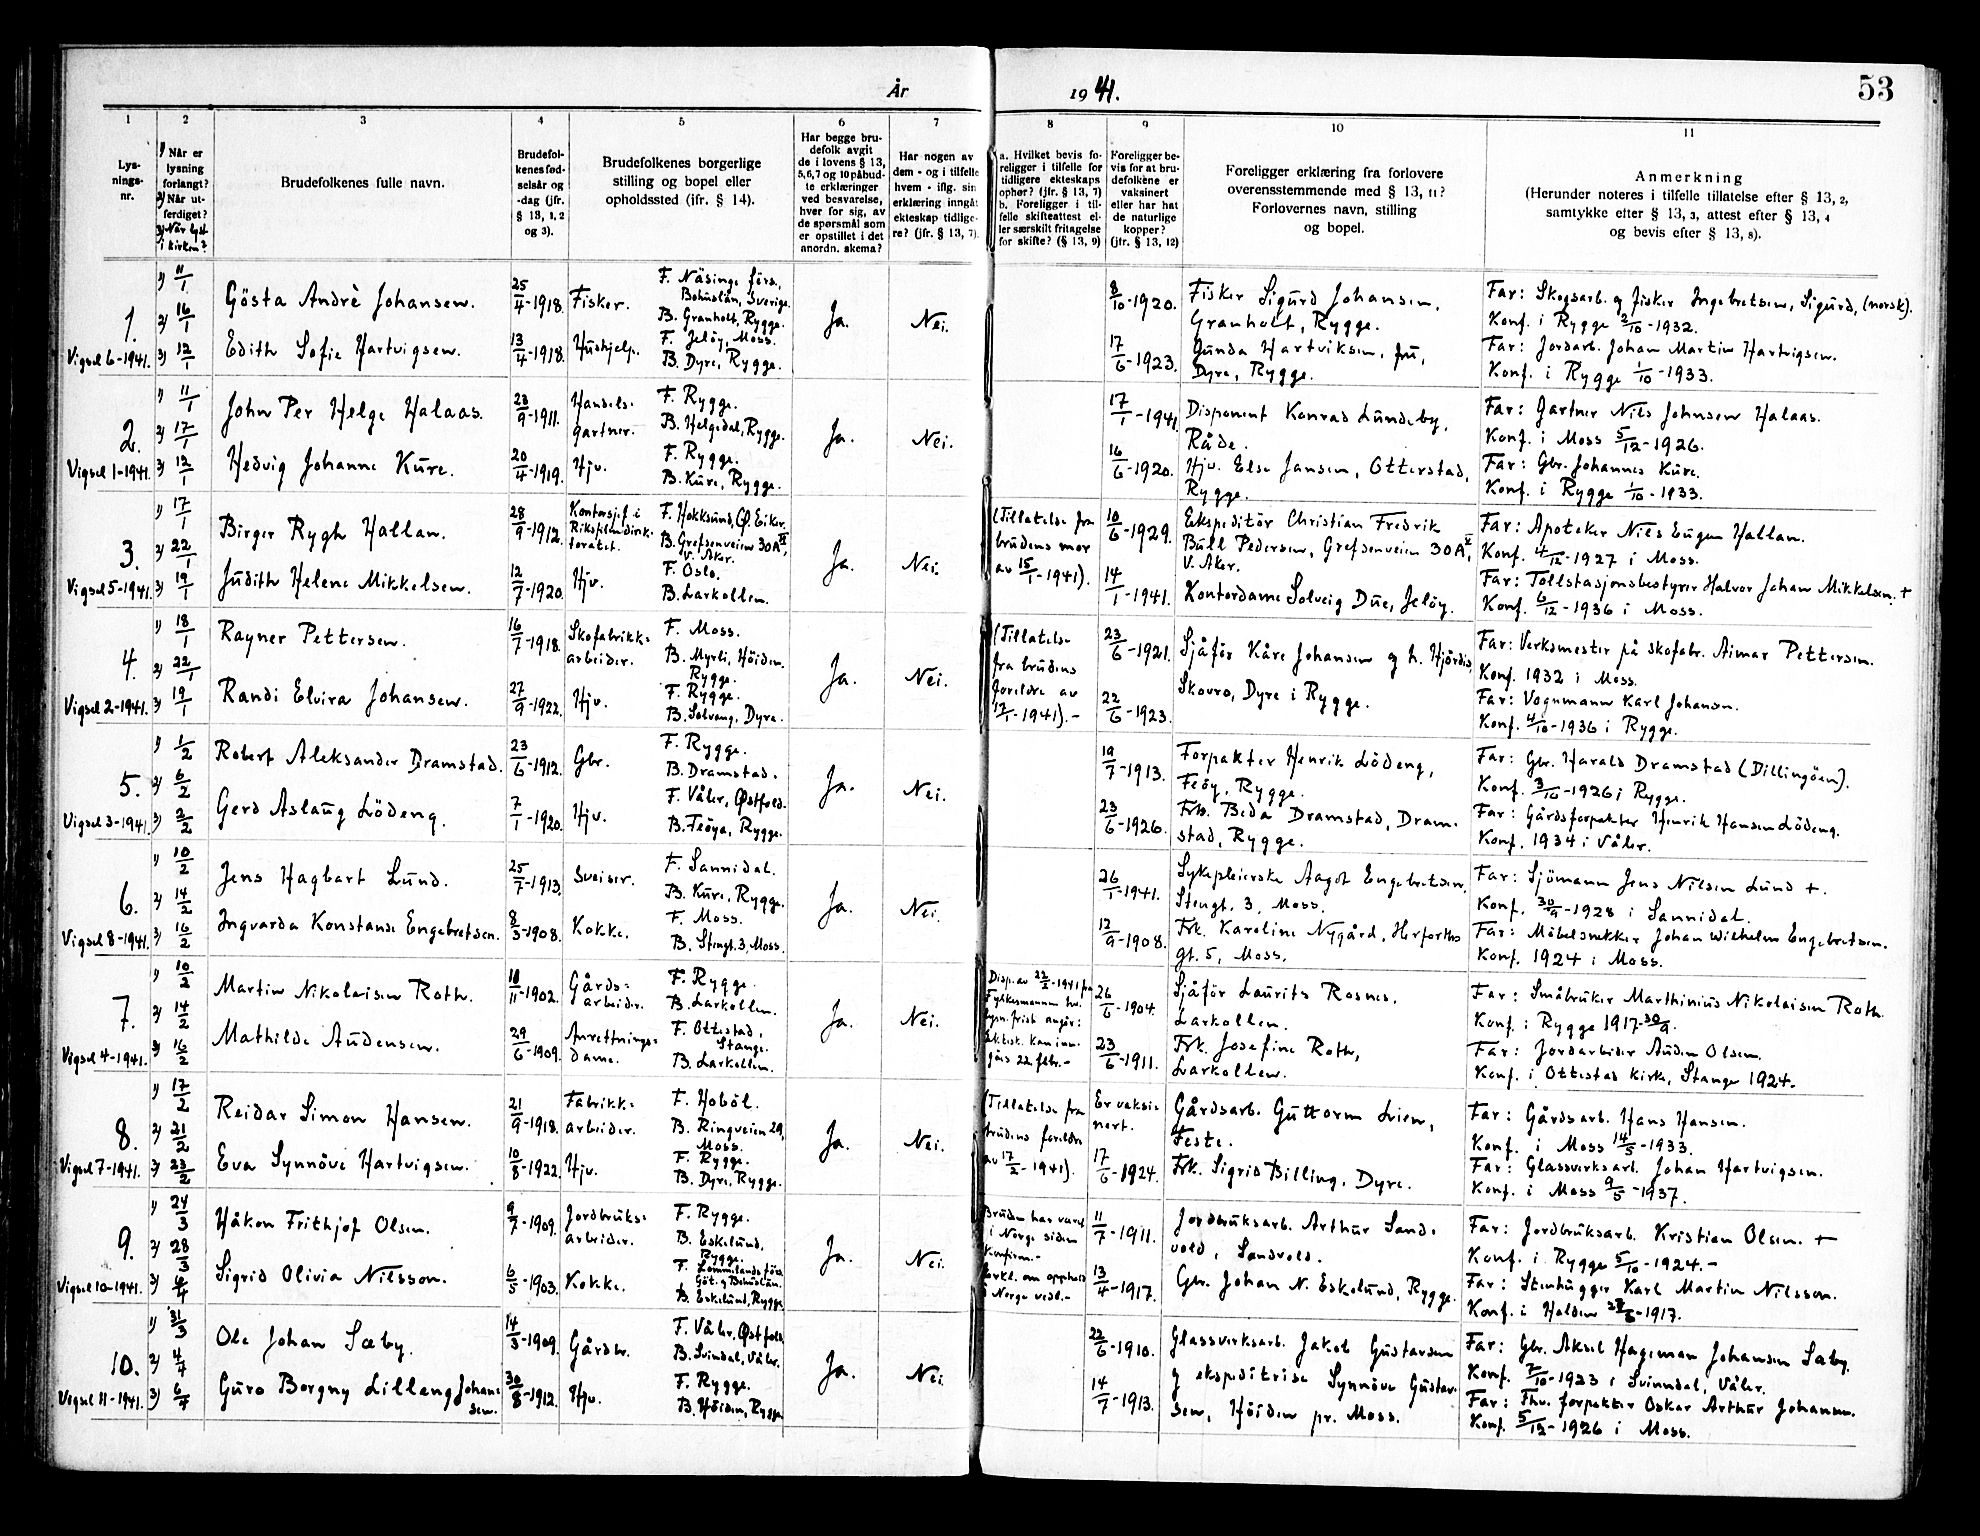 År
1941.
53
1
2
3
4
5
6
7
8
9
10
11
Lys-
nings-
nr.
1) Når er
lysning
forlangt?
2) Når ut-
ferdiget?
3) Når lyst
i kirken?
Brudefolkenes fulle navn.
Brudefol-
kenes fød-
selsår og
-dag (jfr.
§ 13, 1, 2
og 3).
Brudefolkenes borgerlige
stilling og bopel eller
opholdssted (jfr. § 14).
Har begge bru-
defolk avgit
de i lovens § 13,
5,6,7 og 10 påbud-
te erklæringer
ved besvarelse,
hver for sig, av
de spørsmål som
er opstillet i det
anordn. skema?
Har nogen av
dem - og i tilfelle
hvem - iflg. sin
erklæring inngåt
ekteskap tidlige-
re? (jfr. § 13, 7).
a. Hvilket bevis fo-
religger i tilfelle for
tidligere ekteskaps
ophør? (jfr. § 13, 7)
b. Foreligger i til-
felle skifteattest el-
ler særskilt fritagelse
for skifte? (§ 13, 9)
Foreligger be-
vis for at bru-
defolkene er
vaksinert
eller har hat
de naturlige
kopper?
(jfr. § 13, 12)
Foreligger erklæring fra forlovere
overensstemmende med § 13, 11?
Forlovernes navn, stilling
og bopel.
Anmerkning
(Herunder noteres i tilfelle tillatelse efter § 13, 2,
samtykke efter § 13, 3, attest efter § 13, 4
og bevis efter § 13, 8).
1.
Vigsel 6-1941.
1) 11/1
2) 16/1
3) 12/1
Gösta Andrè Johansen.
Edith Sofie Hartvigsen.
25/4-1918.
13/4-1918.
Fisker.
F. Näsinge förs.,
Bohuslän, Sverige.
B. Granholt, Rygge.
Hushjelp.
F. Jelöy, Moss.
B. Dyre, Rygge.
Ja.
Nei.
8/10-1920.
17/6-1923.
Fisker Sigurd Johansen,
Granholt, Rygge.
Gunda Hartviksen, fru,
Dyre, Rygge.
Far: Skogsarb. g fisker Ingebretsen, Sigurd, (norsk).
Konf. i Rygge 2/10-1932.
Far: Jordarb. Johan Martin Hartvigsen.
Konf. i Rygge 1/10-1933.
2.
Vigsel 1-1941.
1) 11/1
2) 17/1
3) 12/1
John Per Helge Halaas.
Hedvig Johanne Kure.
23/9-1911.
20/4-1919.
Handels-
gartner.
F. Rygge.
B. Helgedal, Rygge.
Hjv.
F. Rygge.
B. Kure, Rygge.
Ja.
Nei.
17/1-1941.
16/6-1920.
Disponent Konrad Lundeby,
Råde.
Hjv. Else Jansen, Otterstad,
Rygge.
Far: Gartner Nils Johnsen Halaas.
Konf. i Moss 5/12-1926.
Far: Gbr. Johannes Kure.
Konf. i Rygge 1/10-1933.
3.
Vigsel 5-1941.
1) 17/1
2) 22/1
3) 19/1
Birger Rygh Hallan.
Judith Helene Mikkelsen.
28/9-1912.
12/7-1920.
Kontorsjef i
Riksfilmdirek-
toratet.
F. Hokksund, Ø. Eiker.
B. Grefsenveien 30A VI,
V. Aker.
Hjv.
F. Oslo.
B. Larkollen.
Ja.
Nei.
(Tillatelse fra
brudens mor
av 15/1-1941).
10/6-1929.
14/1-1941.
Ekspeditör Christian Fredrik
Bull Pedersen, Grefsenveien 30A VI,
V. Aker.
Kontordame Solveig Due, Jelöy.
Far: Apoteker Nils Eugen Hallan.
Konf. 4/12-1927 i Moss.
Far: Tollstasjonsbestyrer Halvor Johan Mikkelsen. +
Konf. 6/12-1936 i Moss.
4.
Vigsel 2-1941.
1) 18/1
2) 22/1
3) 19/1
Rayner Pettersen.
Randi Elvira Johansen.
16/7-1918.
27/9-1922.
Skofabrikk-
arbeider.
F. Moss.
B. Myrli, Höiden.
Rygge.
Hjv.
F. Rygge.
B. Solvang, Dyre.
Ja.
Nei.
(Tillatelse
fra brudens
foreldre av
17/1-1941).-
23/6-1921.
22/6-1923.
Sjåför Kåre Johansen g h. Hjördis
Skovro, Dyre i Rygge.
Far: Verksmester på skofabr. Aimar Pettersen.
Konf. 1932 i Moss.
Far: Vognmann Karl Johansen.
Konf. 4/10-1936 i Rygge.
5.
Vigsel 3-1941.
1) 1/2
2) 6/2
3) 2/2
Robert Aleksander Dramstad.
Gerd Aslaug Lödeng.
23/6-1912.
7/1-1920.
Gbr.
F. Rygge.
B. Dramstad.
Hjv.
F. Våler, Østfold.
B. Feöya, Rygge.
Ja.
Nei.
19/7-1913.
23/6-1926.
Forpakter Henrik Lödeng,
Feöy, Rygge.
Frk. Beda Dramstad, Dram-
stad, Rygge.
Far: Gbr. Harald Dramstad (Dillingöen).
Konf. 3/10-1926 i Rygge.
Far: Gårdsforpakter Henrik Hansen Lödeng.
Konf. 1934 i Våler.
6.
Vigsel 8-1941.
1) 10/2
2) 14/2
3) 16/2
Jens Hagbart Lund.
Ingvarda Konstanse Engebretsen.
25/7-1913.
8/3-1908.
Sveiser.
F. Sannidal.
B. Kure, Rygge.
Kokke.
F. Moss.
B. Stengt. 3, Moss.
Ja.
Nei.
26/1-1941.
12/9-1908.
Sykepleierske Aagot Engebretsen,
Stengt. 3, Moss.
Frk. Karoline Nygård, Herforths
gt. 5, Moss.
Far: Sjömann Jens Nilsen Lund +.
Konf. 30/9-1928 i Sannidal.
Far: Möbelsnekker Johan Wilhelm Engebretsen.
Konf. 1924 i Moss.
7.
Vigsel 4-1941.
1) 10/2
2) 14/2
3) 16/2
Martin Nikolaisen Roth.
Mathilde Audensen.
18/11-1902.
29/6-1909.
Gårds-
arbeider.
F. Rygge.
B. Larkollen.
Anrettnings-
dame.
F. Ottestad,
Stange.
B. Larkollen.
Ja.
Nei.
Disp. av 22/2-1941 fra
Fylkesmannen
lysn. frist angår:
Ektesk. kan inn-
gås 22. febr.-
26/6-1904.
23/6-1911.
Sjåför Laurits Rosnes,
Larkollen.
Frk. Josefine Roth,
Larkollen.
Far: Småbruker Marthinius Nikolaisen Roth.
Konf. i Rygge 1917-30/9.
Far: Jordarbeider Auden Olsen.
Konf. i Ottestad kirke, Stange 1924.-
8.
Vigsel 7-1941.
1) 17/2
2) 21/2
3) 23/2
Reidar Simon Hansen.
Eva Synnöve Hartvigsen.
21/9-1918.
10/8-1922.
Fabrikk-
arbeider.
F. Hoböl.
B. Ringveien 29,
Moss.
Hjv.
F. Rygge.
B. Dyre, Rygge.
Ja.
Nei.
(Tillatelse fra
brudens foreldre
av 17/2-1941).
Er vaksi-
nert.
17/6-1924.
Gårdsarb. Guttorm Lien,
Feste.
Frk. Sigrid Billing, Dyre.
Far: Gårdsarb. Hans Hansen.
Konf. i Moss 14/5-1933.
Far: Glassverksarb. Johan Hartvigsen.
Konf. i Moss 9/5-1937.
9.
Vigsel 10-1941.
1) 24/3
2) 28/3
3) 6/4
Håkon Frithjof Olsen.
Sigrid Olivia Nilsson.
9/7-1909.
6/5-1903.
Jordbruks-
arbeider.
F. Rygge.
B. Eskelund,
Rygge.
Kokke.
F. Lommelands förs.
Göt. g Bohuslän.
B. Eskelund, Rygge
Ja.
Nei.
Bruden har vært
i Norge siden
Konfirm.-
Erkl. om opphold
i Norge vedl.-
11/7-1911.
13/4-1917.
Jordbruksarb. Arthur Sand-
vold, Sandvold.
Gbr. Johan N. Eskelund, Rygge.
Far: Jordbruksarb. Kristian Olsen. +
Konf. i Rygge 5/10-1924.-
Far: Stenhugger Karl Martin Nilsson.
Konf. i Halden -1917.
10.
Vigsel 11-1941.
1) 31/3
2) 4/4
3) 6/4
Ole Johan Sæby.
Guro Borgny Lilleng Johan-
sen.
14/3-1909.
30/8-1912.
Gårdbr.
F. Våler, Østfold
B. Svindal, Våler.
Hjv.
F. Rygge.
B. Höiden, Rygge
Ja.
Nei.
22/6-1910.
14/7-1913.
Glassverksarb. Jakob Gustavsen
g ekspeditrise Synnöve Gustav-
sen, Höiden pr. Moss.
Far: Gbr. Aksel Hageman Johansen Sæby.
Konf. 7/10-1923 i Svinndal, Våler.
Far: Fhv. forpakter Oskar Arthur Johansen.
Konf. 5/12-1926 i Moss.